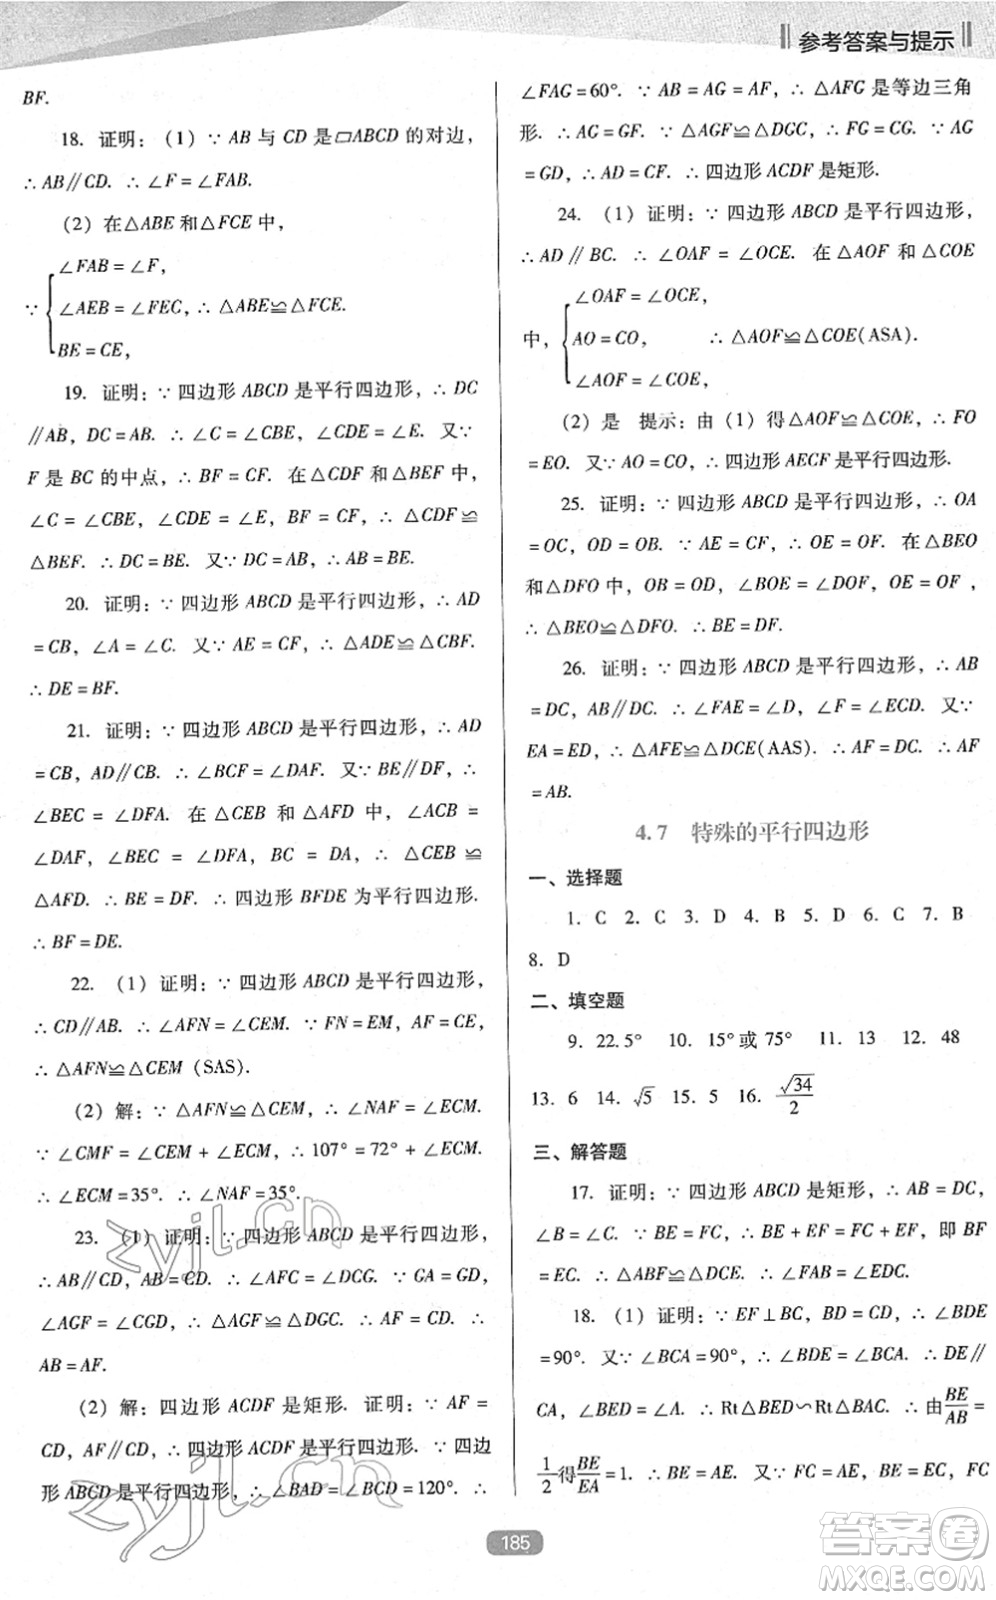 参考答案与提示
BF.
18. 证明：（1）∵ AB 与 CD 是▱ABCD 的对边，
∴ AB∥CD. ∴ ∠F = ∠FAB.
（2）在△ABE 和△FCE 中，
∠FAB = ∠F，
∵ ∠AEB = ∠FEC，∴ △ABE≌△FCE.
BE = CE，
19. 证明：∵ 四边形 ABCD 是平行四边形，∴ DC
∥AB，DC = AB. ∴ ∠C = ∠CBE，∠CDE = ∠E. 又∵
F 是 BC 的中点，∴ BF = CF. 在 △CDF 和 △BEF 中，
∠C = ∠CBE，∠CDE = ∠E，BF = CF，∴ △CDF ≌
△BEF. ∴ DC = BE. 又∵ DC = AB，∴ AB = BE.
20. 证明：∵ 四边形 ABCD 是平行四边形，∴ AD
= CB，∠A = ∠C. 又∵ AE = CF，∴ △ADE≌△CBF.
∴ DE = BF.
21. 证明：∵ 四边形 ABCD 是平行四边形，∴ AD
= CB，AD∥CB. ∴ ∠BCF = ∠DAF. 又∵ BE∥DF，∴
∠BEC = ∠DFA. 在 △CEB 和 △AFD 中，∠ACB =
∠DAF，∠BEC = ∠DFA，BC = DA，∴ △CEB ≌
△AFD. ∴ BE = DF. ∴ 四边形 BFDE 为平行四边形.
∴ BF = DE.
22. （1）证明：∵ 四边形 ABCD 是平行四边形，
∴ CD∥AB. ∴ ∠AFN = ∠CEM. ∵ FN = EM，AF = CE，
∴ △AFN≌△CEM（SAS）.
（2）解：∵ △AFN≌△CEM，∴ ∠NAF = ∠ECM.
∵ ∠CMF = ∠CEM + ∠ECM，∴ 107° = 72° + ∠ECM.
∴ ∠ECM = 35°. ∴ ∠NAF = 35°.
23. （1）证明：∵ 四边形 ABCD 是平行四边形，
∴ AB∥CD，AB = CD. ∴ ∠AFC = ∠DCG. ∵ GA = GD，
∠AGF = ∠CGD，∴ △AGF ≌ △DGC. ∴ AF = CD. ∴
AB = AF.
（2）解：四边形 ACDF 是矩形. 证明：∵ AF =
CD，AF∥CD，∴ 四边形 ACDF 是平行四边形. ∵ 四边
形 ABCD 是平行四边形，∴ ∠BAD = ∠BCD = 120°. ∴
∠FAG = 60°. ∵ AB = AG = AF，∴ △AFG 是等边三角
形. ∴ AG = GF. ∵ △AGF≌△DGC，∴ FG = CG. ∵ AG
= GD，∴ AD = CF. ∴ 四边形 ACDF 是矩形.
24. （1）证明：∵ 四边形 ABCD 是平行四边形，
∴ AD∥BC. ∴ ∠OAF = ∠OCE. 在 △AOF 和 △COE
∠OAF = ∠OCE，
中，AO = CO， ∴ △AOF≌△COE(ASA).
∠AOF = ∠COE，
（2）是 提示：由（1）得△AOF≌△COE，∴ FO
= EO. 又∵ AO = CO，∴ 四边形 AECF 是平行四边形.
25. 证明：∵ 四边形 ABCD 是平行四边形，∴ OA
= OC，OD = OB. ∵ AE = CF，∴ OE = OF. 在△BEO
和△DFO 中，OB = OD，∠BOE = ∠DOF，OE = OF，
∴ △BEO≌△DFO. ∴ BE = DF.
26. 证明：∵ 四边形 ABCD 是平行四边形，∴ AB
= DC，AB∥DC. ∴ ∠FAE = ∠D，∠F = ∠ECD. 又∵
EA = ED，∴ △AFE≌△DCE(AAS). ∴ AF = DC. ∴ AF
= AB.
4.7 特殊的平行四边形
一、选择题
1. C 2. C 3. D 4. B 5. D 6. C 7. B
8. D
二、填空题
9. 22.5° 10. 15°或 75° 11. 13 12. 48
13. 6 14. √5 15. 5 16. √34/2
三、解答题
17. 证明：∵ 四边形 ABCD 是矩形，∴ AB = DC，
∠B = ∠C. ∵ BE = FC，∴ BE + EF = FC + EF，即 BF
= EC. ∴ △ABF≌△DCE. ∴ ∠FAB = ∠EDC.
18. （1）证明：∵ EF⊥BC，BD = CD，∴ ∠BDE
= 90°. 又∵ ∠BCA = 90°，∴ ∠BDE = ∠BCA. ∴ DE∥
CA，∠BED = ∠BAC. ∴ Rt△BED∽Rt△BAC. ∴ 由BE/AB =
1/2得BE/EA = 1. ∴ BE = AE. 又∵ FC = AE，BE = EC，FC
185
zyjl.cn
zyjl.cn
答案圈
MXQE.COM